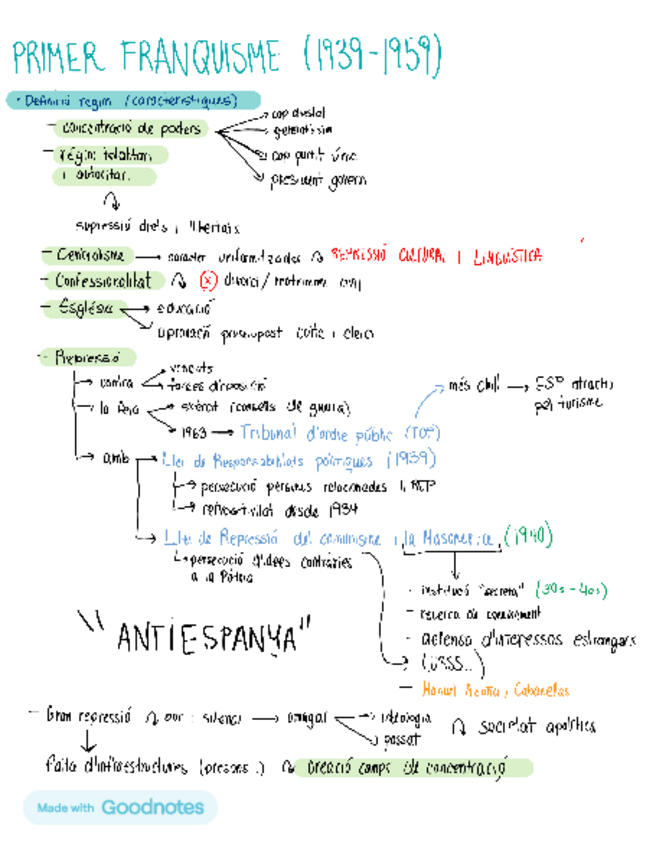 PRIMER FRANQUISME (1939-1959)
· Definició règim (característiques)
- concentració de poders
cap d'estat
generalíssim
cap partit únic
president govern
- règim totalitari
i autoritari
supressió drets i llibertats
- Centralisme → caràcter uniformitzador REPRESSIÓ CULTURAL I LINGÜÍSTICA
- Confessionalitat (x) divorci/matrimoni civil
- Església → educació
aprovació pressupost culte i clero
- Repressió
→ contra
vençuts
forces d'oposició
→ la feia → exèrcit (consells de guerra)
1963 → Tribunal d'ordre públic (TOP)
més chill → ESP atractiu
pel turisme
→ amb → Llei de Responsabilitats polítiques (1939)
→ persecució persones relacionades
→ retroactivitat desde 1934
→ Llei de Repressió del comunisme i la Masoneria (1940)
persecució d'idees contràries
a la Pàtria
· institució "secreta" (30s-40s)
- recerca de coneixement
- defensa d'interessos estrangers
(URSS...)
- Manuel Azaña, Cabanellas
"ANTIESPANYA"
- Gran repressió por i silenci → amagar
ideologia
passat
societat apolítica
falta d'infraestructures (presons..) creació camps de concentració
Made with Goodnotes